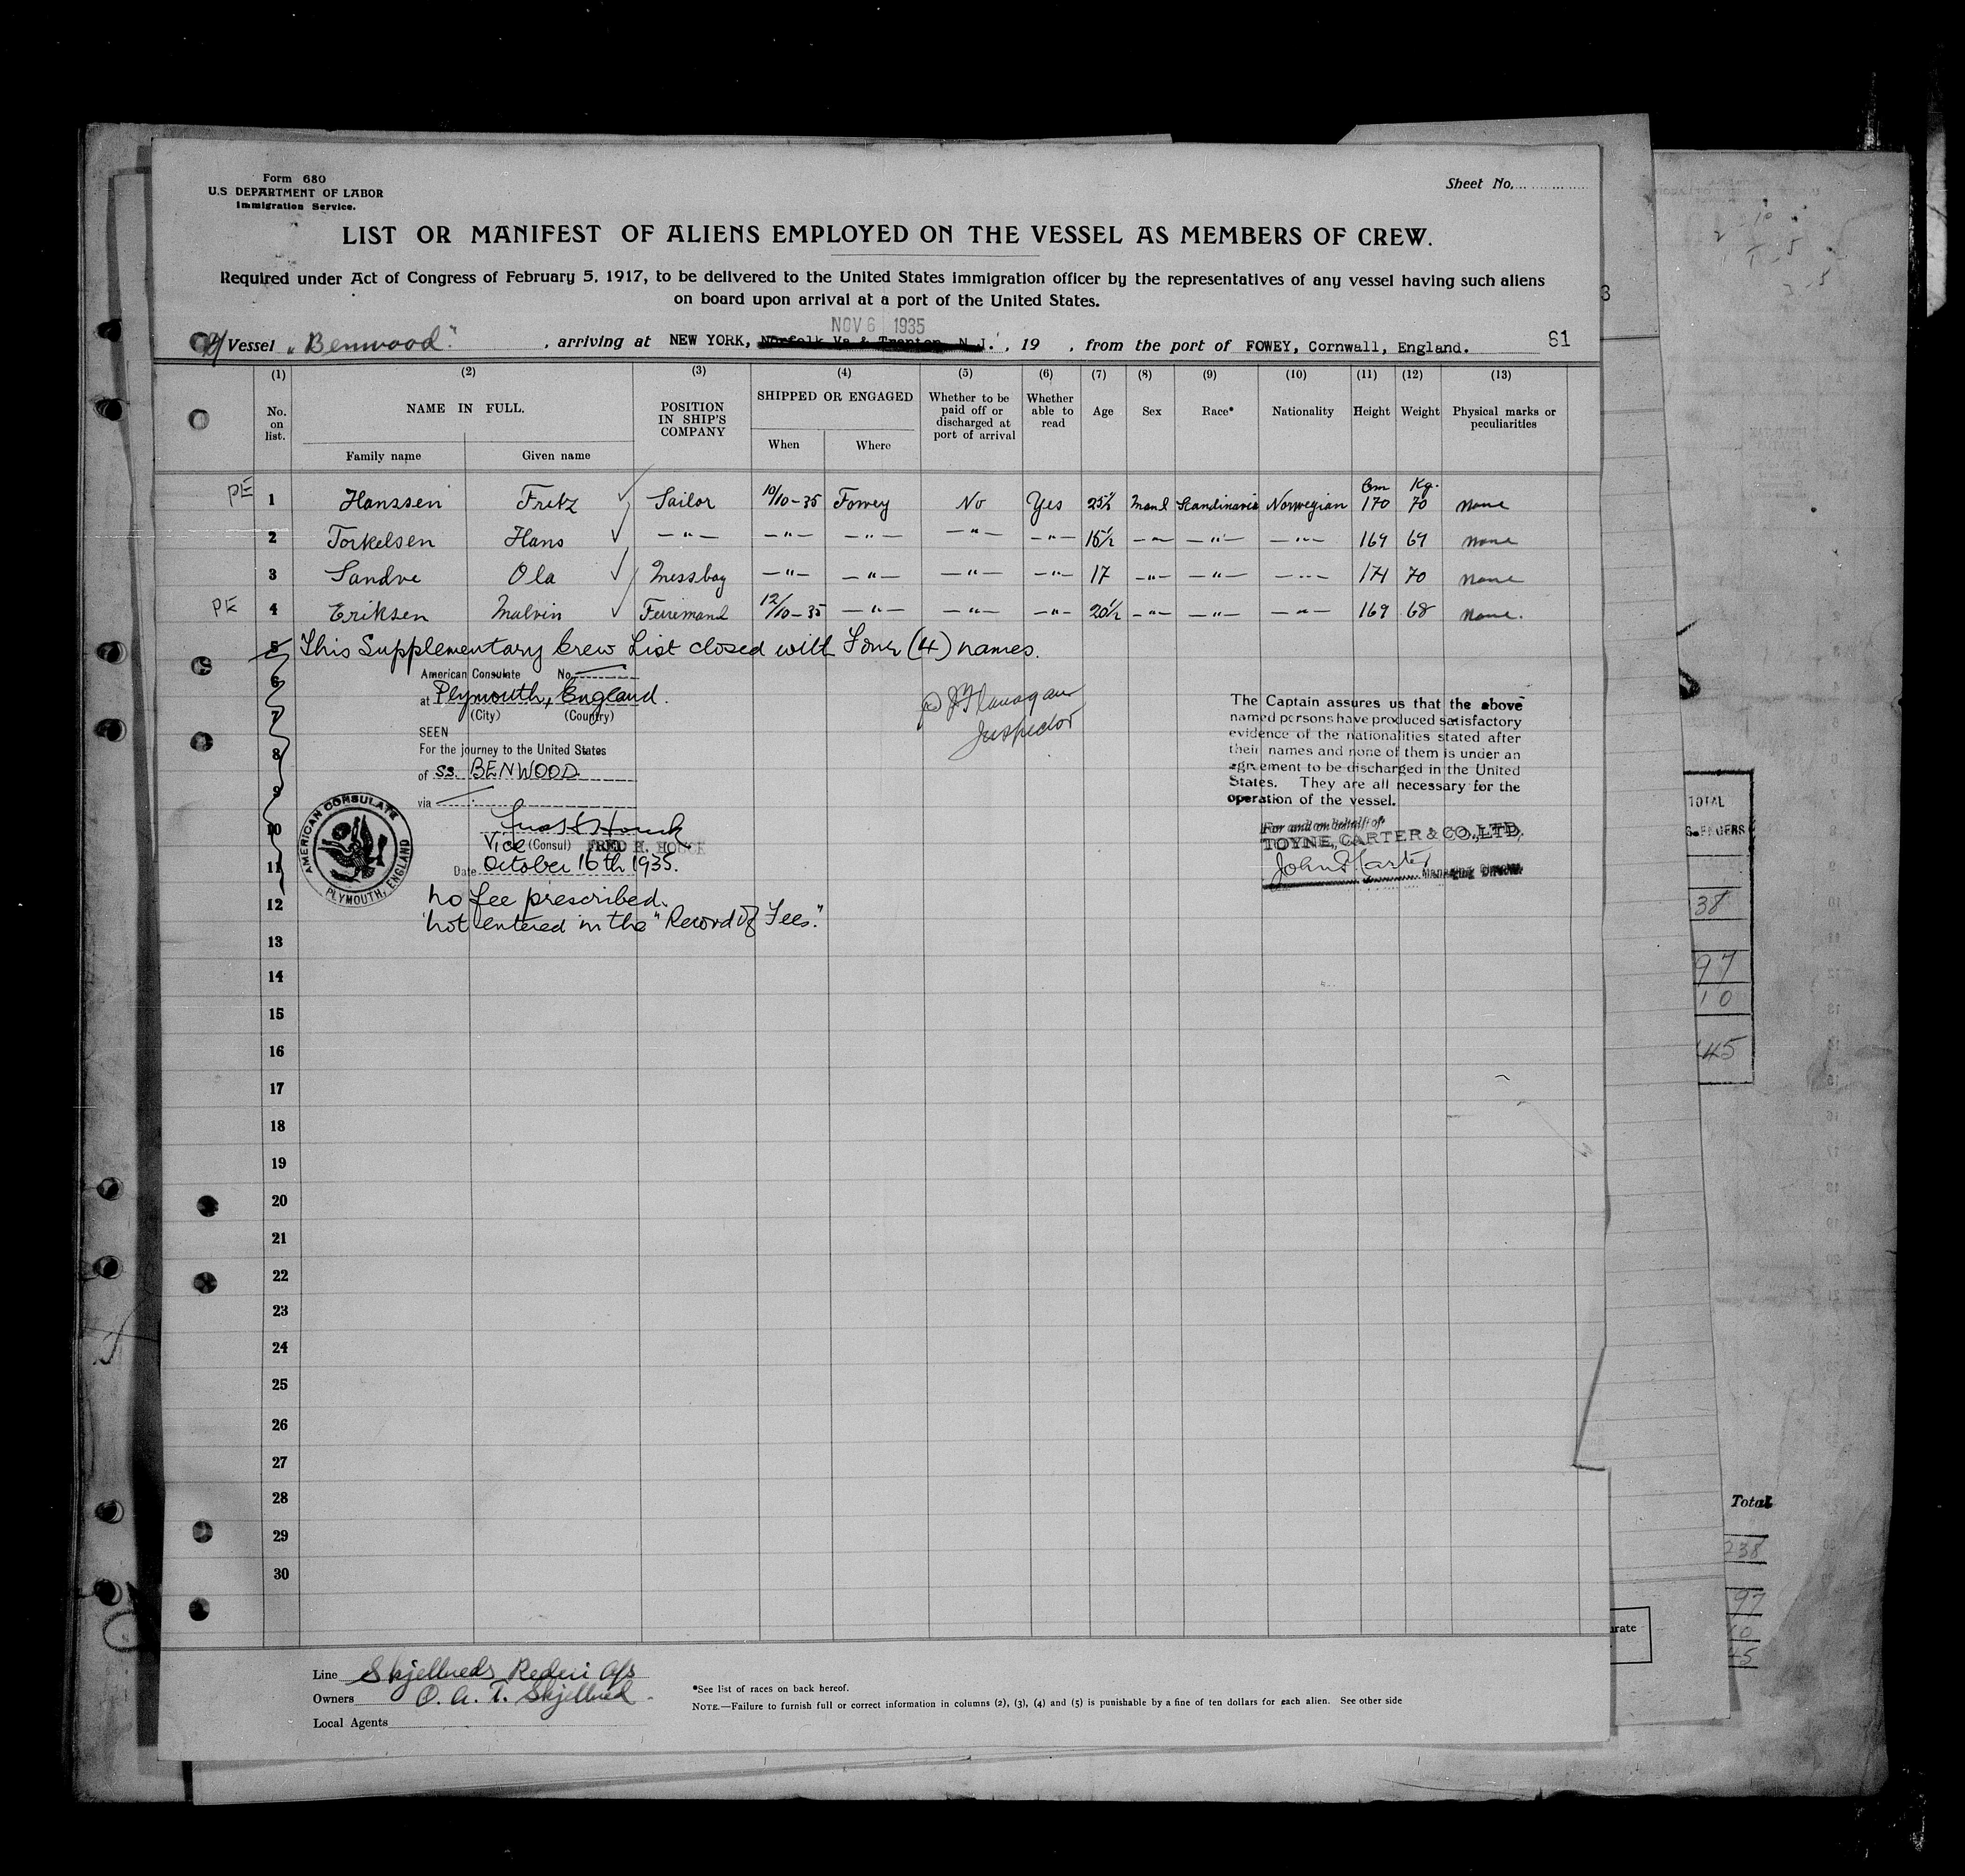 Form 680
U.S DEPARTMENT OF LABOR
Immigration Service.
Sheet No.
LIST OR MANIFEST OF ALIENS EMPLOYED ON THE VESSEL AS MEMBERS OF CREW.
Required under Act of Congress of February 5, 1917, to be delivered to the United States immigration officer by the representatives of any vessel having such aliens
on board upon arrival at a port of the United States.
NOV 6 1935
Vessel "Benwood", arriving at NEW YORK, Norfolk Va & Trenton N.J., 19 , from the port of FOWEY, Cornwall, England. 81
(1) (2) (3) (4) (5) (6) (7) (8) (9) (10) (11) (12) (13)
No. on list. NAME IN FULL. POSITION IN SHIP'S COMPANY SHIPPED OR ENGAGED Whether to be paid off or discharged at port of arrival Whether able to read Age Sex Race* Nationality Height Weight Physical marks or peculiarities
Family name Given name When Where
Cm Kg.
PE 1 Hanssen Fritz Sailor 10/10-35 Fowey No Yes 25½ Scandinavia Norwegian 170 70 none
2 Torkelsen Hans —"— —"— —"— —"— —"— —"— —"— —"— 169 69 none
3 Sandve Ola Messboy —"— —"— —"— —"— 17 —"— —"— —"— 171 70 none
PE 4 Eriksen Malvin 12/10-35 —"— —"— —"— 20½ —"— —"— —"— 169 68 none.
5 This Supplementary Crew List closed with Four (4) names.
6
7
8
9
10
11
12
13
14
15
16
17
18
19
20
21
22
23
24
25
26
27
28
29
30
American Consulate No.
at Plymouth, England.
(City) (Country)
SEEN
For the journey to the United States
of SS. BENWOOD
via
Vice (Consul) FRED H. HOUCK
Date October 16th 1935.
No fee prescribed.
Not entered in the "Record of Fees."
AMERICAN CONSULATE
PLYMOUTH, ENGLAND
Flanagan
Inspector
The Captain assures us that the above
named persons have produced satisfactory
evidence of the nationalities stated after
their names and none of them is under an
agreement to be discharged in the United
States. They are all necessary for the
operation of the vessel.
For and on behalf of
TOYNE, CARTER & CO., LTD.
John Carter
Managing Director
Line Skjelbreds Rederi A/s
Owners O. A. T. Skjelbred
Local Agents
*See list of races on back hereof.
NOTE.—Failure to furnish full or correct information in columns (2), (3), (4) and (5) is punishable by a fine of ten dollars for each alien. See other side
TOTAL
38
97
10
45
Total
238
97
10
45